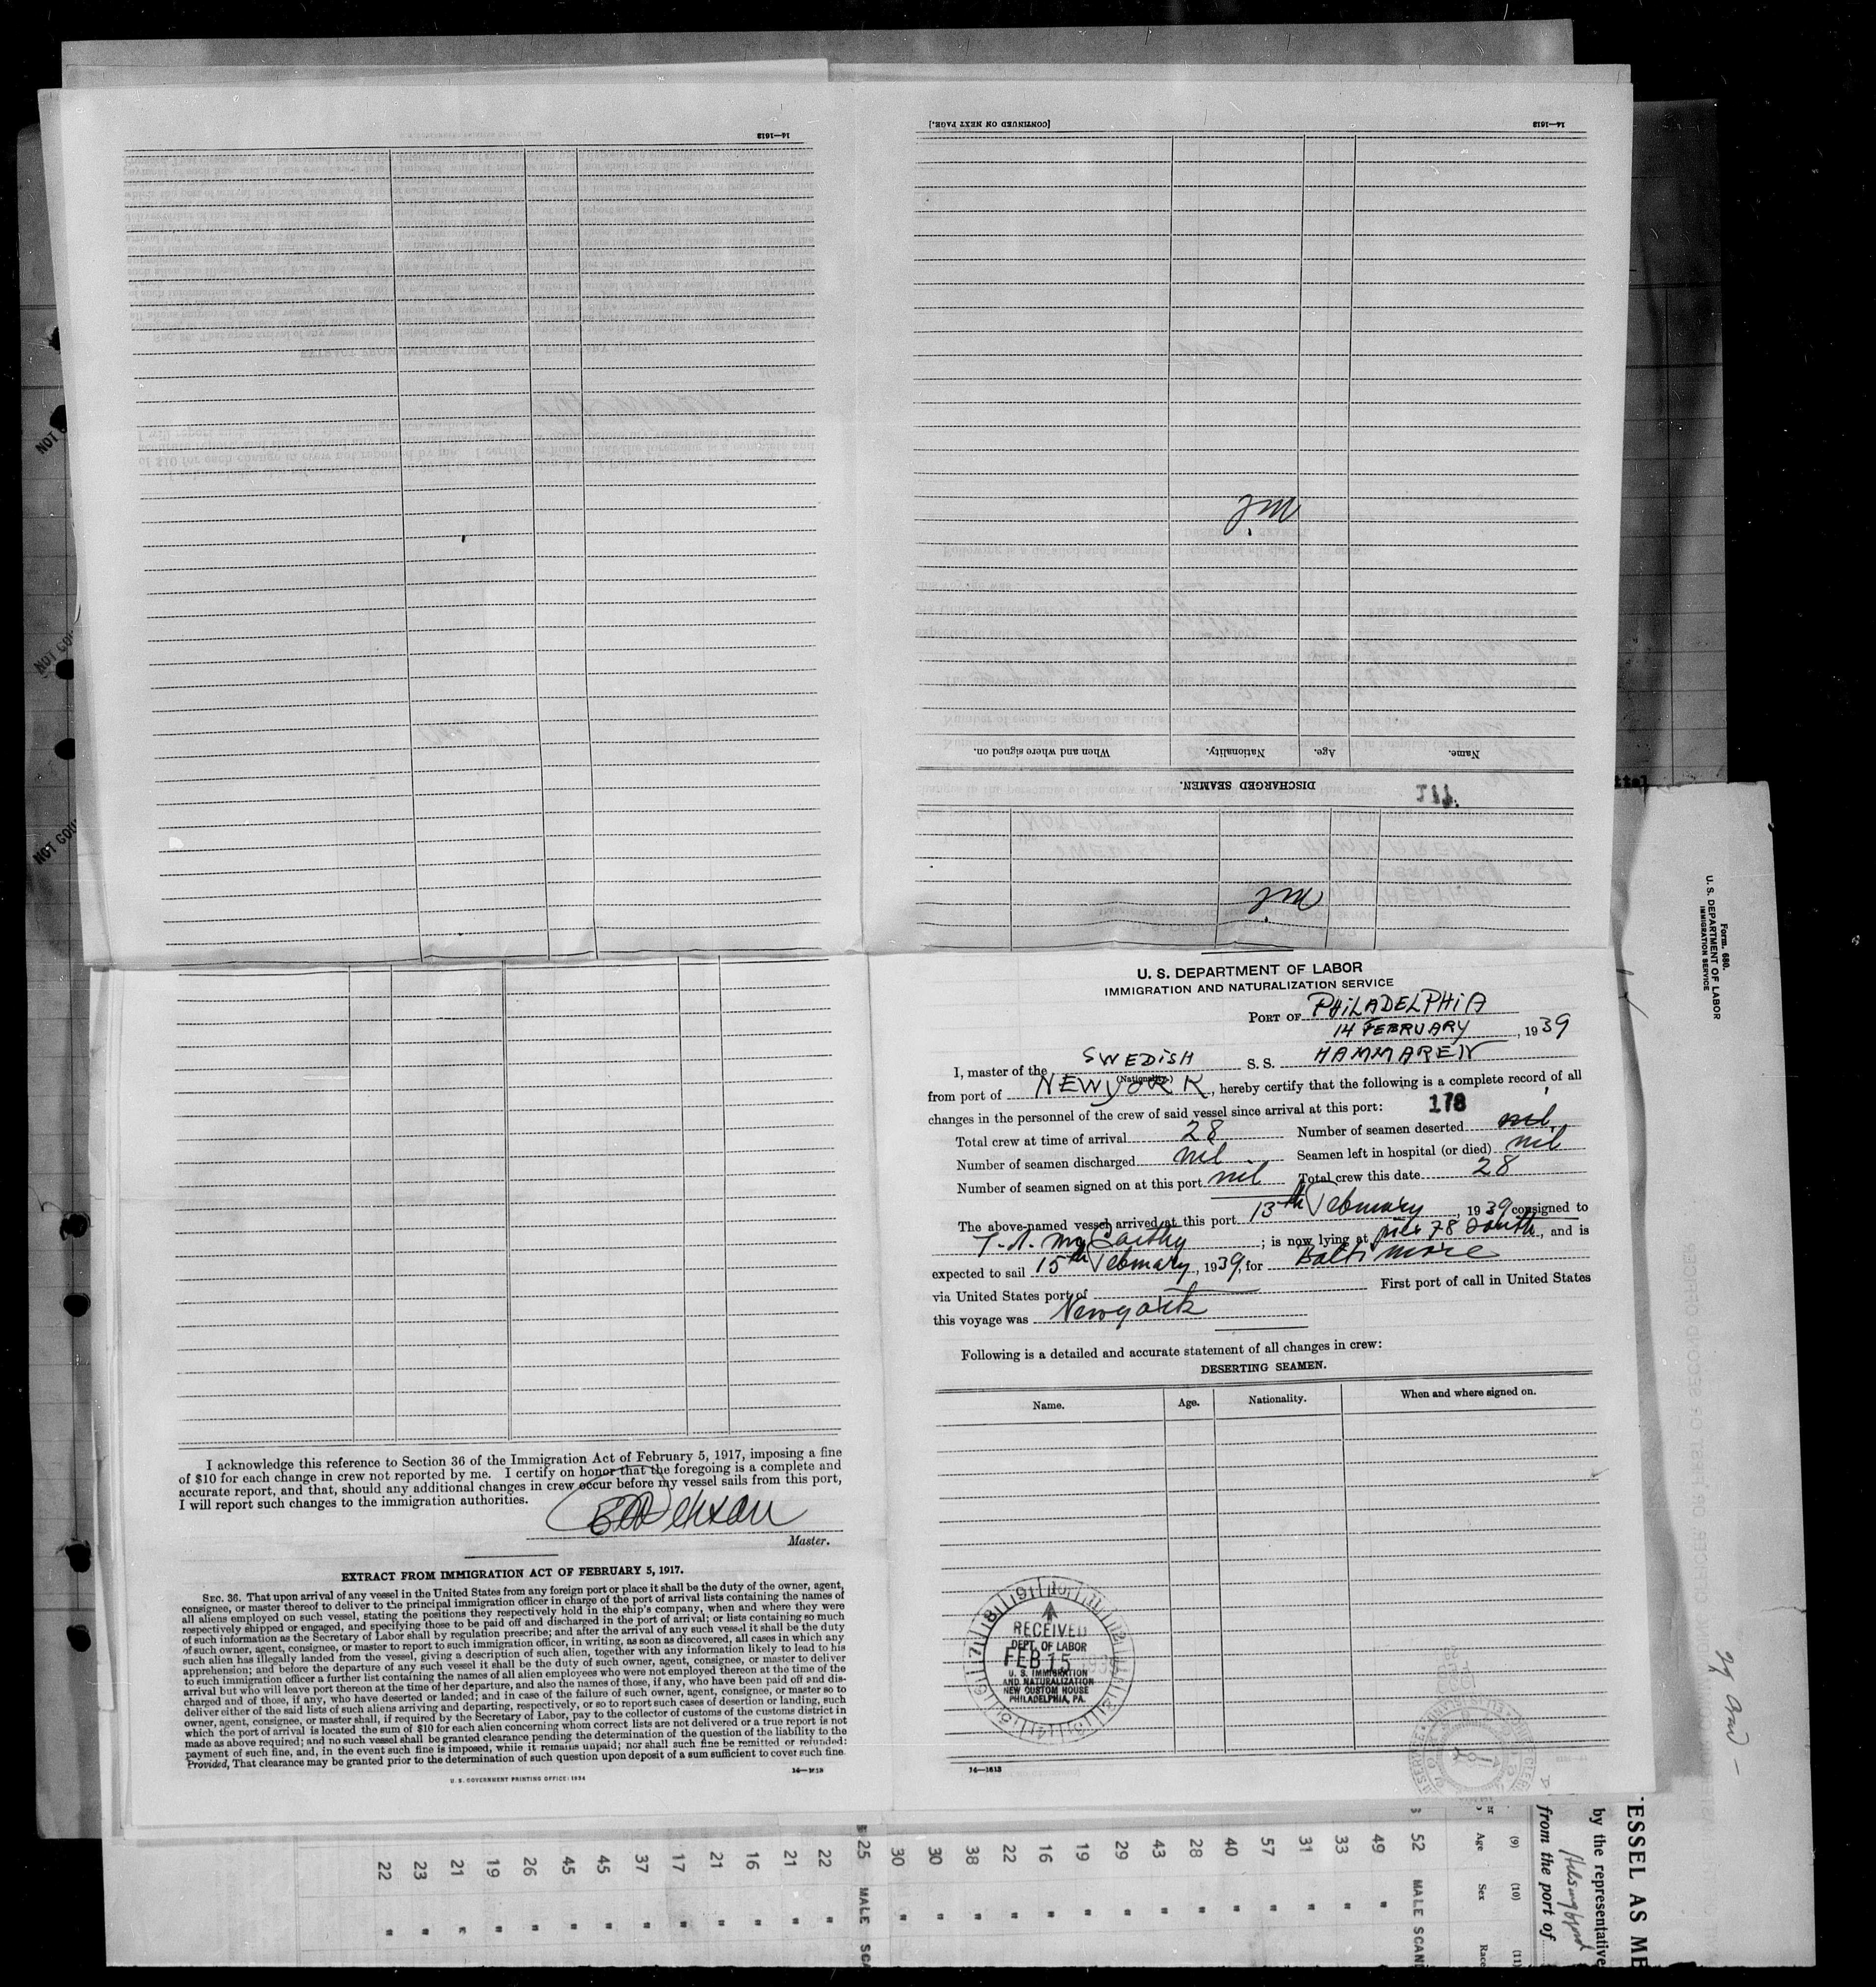 14—1613
[CONTINUED ON NEXT PAGE.]
14—1613
nil
Name.
Age.
Nationality.
When and where signed on.
DISCHARGED SEAMEN.
nil
U. S. DEPARTMENT OF LABOR
IMMIGRATION AND NATURALIZATION SERVICE
PORT OF PHILADELPHIA
14 FEBRUARY, 1939
I, master of the SWEDISH S. S. HAMMAREN
(Nationality)
from port of NEWYORK, hereby certify that the following is a complete record of all
changes in the personnel of the crew of said vessel since arrival at this port: 178
Total crew at time of arrival 28 Number of seamen deserted nil
Number of seamen discharged nil Seamen left in hospital (or died) nil
Number of seamen signed on at this port nil Total crew this date 28
The above-named vessel arrived at this port 13th February, 1939 consigned to
McCarthy; is now lying at pier 78 South, and is
expected to sail 15th February, 1939, for Baltimore
via United States port of First port of call in United States
this voyage was Newyork
Following is a detailed and accurate statement of all changes in crew:
DESERTING SEAMEN.
Name. Age. Nationality. When and where signed on.
RECEIVED
DEPT. OF LABOR
FEB 15 1939
U. S. IMMIGRATION
AND NATURALIZATION
NEW CUSTOM HOUSE
PHILADELPHIA, PA.
14—1613
I acknowledge this reference to Section 36 of the Immigration Act of February 5, 1917, imposing a fine
of $10 for each change in crew not reported by me. I certify on honor that the foregoing is a complete and
accurate report, and that, should any additional changes in crew occur before my vessel sails from this port,
I will report such changes to the immigration authorities.
Master.
EXTRACT FROM IMMIGRATION ACT OF FEBRUARY 5, 1917.
SEC. 36. That upon arrival of any vessel in the United States from any foreign port or place it shall be the duty of the owner, agent,
consignee, or master thereof to deliver to the principal immigration officer in charge of the port of arrival lists containing the names of
all aliens employed on such vessel, stating the positions they respectively hold in the ship's company, when and where they were
respectively shipped or engaged, and specifying those to be paid off and discharged in the port of arrival; or lists containing so much
of such information as the Secretary of Labor shall by regulation prescribe; and after the arrival of any such vessel it shall be the duty
of such owner, agent, consignee, or master to report to such immigration officer, in writing, as soon as discovered, all cases in which any
such alien has illegally landed from the vessel, giving a description of such alien, together with any information likely to lead to his
apprehension; and before the departure of any such vessel it shall be the duty of such owner, agent, consignee, or master to deliver
to such immigration officer a further list containing the names of all alien employees who were not employed thereon at the time of the
arrival but who will leave port thereon at the time of her departure, and also the names of those, if any, who have been paid off and dis-
charged and of those, if any, who have deserted or landed; and in case of the failure of such owner, agent, consignee, or master so to
deliver either of the said lists of such aliens arriving and departing, respectively, or so to report such cases of desertion or landing, such
owner, agent, consignee, or master shall, if required by the Secretary of Labor, pay to the collector of customs of the customs district in
which the port of arrival is located the sum of $10 for each alien concerning whom correct lists are not delivered or a true report is not
made as above required; and no such vessel shall be granted clearance pending the determination of the question of the liability to the
payment of such fine, and, in the event such fine is imposed, while it remains unpaid; nor shall such fine be remitted or refunded:
Provided, That clearance may be granted prior to the determination of such question upon deposit of a sum sufficient to cover such fine
U. S. GOVERNMENT PRINTING OFFICE: 1934
14—1613
Form. 680.
U. S. DEPARTMENT OF LABOR
IMMIGRATION SERVICE
NOT COU
NOT COU
ESSEL AS ME
by the representative
from the port of
(9) (10) (11)
Age Sex Race
52 MALE SCAN
49 "
33 "
31 "
57 "
40 "
28 "
43 "
29 "
19 "
16 "
22 "
38 "
30 "
30 "
25 MALE SCA
22 "
21 "
16 "
21 "
17 "
37 "
45 "
45 "
26 "
19 "
21 "
23 "
22 "